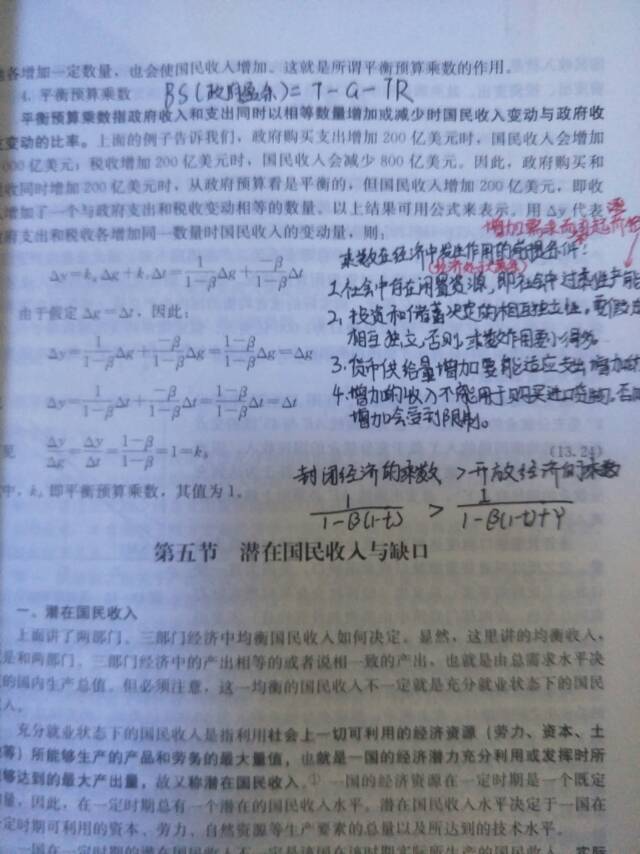 各增加一定数量，也会使国民收入增加。这就是所谓平衡预算乘数的作用。
4. 平衡预算乘数 BS(政府盈余)=T-G-TR
平衡预算乘数指政府收入和支出同时以相等数量增加或减少时国民收入变动与政府收
变动的比率。上面的例子告诉我们，政府购买支出增加200亿美元时，国民收入会增加
000亿美元；税收增加200亿美元时，国民收入会减少800亿美元。因此，政府购买和
收同时增加200亿美元时，从政府预算看是平衡的，但国民收入增加200亿美元，即收
增加了一个与政府支出和税收变动相等的数量。以上结果可用公式来表示。用Δy代表
府支出和税收各增加同一数量时国民收入的变动量，则：
增加需求而引起
乘数在经济中发生作用的前提条件：
(经济处于萧条)
Δy=kgΔg+ktΔt=1/(1-β)Δg+-β/(1-β)Δt
1.社会中存在闲置资源，即社会中过剩生产能
由于假定Δg=Δt，因此：
2.投资和储蓄决定的相互独立性，要假定
相互独立，否则，乘数作用要小得多。
Δy=1/(1-β)Δg+-β/(1-β)Δg=(1-β)/(1-β)Δg=Δg
3.货币供给量增加要能适应支出增加的
Δy=1/(1-β)Δt+-β/(1-β)Δt=(1-β)/(1-β)Δt=Δt
4.增加的收入不能用于购买进口货物，否
增加会受到限制。
见 Δy/Δg=Δy/Δt=(1-β)/(1-β)=1=kb (13.24)
中，kb即平衡预算乘数，其值为1。
封闭经济的乘数 > 开放经济的乘数
1/(1-β(1-t)) > 1/(1-β(1-t)+γ)
第五节 潜在国民收入与缺口
一、潜在国民收入
上面讲了两部门、三部门经济中均衡国民收入如何决定。显然，这里讲的均衡收入，
是和两部门、三部门经济中的产出相等的或者说相一致的产出，也就是由总需求水平决
的国内生产总值。但必须注意，这一均衡的国民收入不一定就是充分就业状态下的国民
入。
充分就业状态下的国民收入是指利用社会上一切可利用的经济资源（劳力、资本、土
等）所能够生产的产品和劳务的最大量值，也就是一国的经济潜力充分利用或发挥时所
够达到的最大产出量，故又称潜在国民收入。①一国的经济资源在一定时期是一个既定
量，因此，在一定时期总有一个潜在的国民收入水平。潜在国民收入水平决定于一国在
定时期可利用的资本、劳力、自然资源等生产要素的总量以及所达到的技术水平。
一国在一定时期的潜在国民收入不一定是该国在该时期实际所生产的国民收入。实际